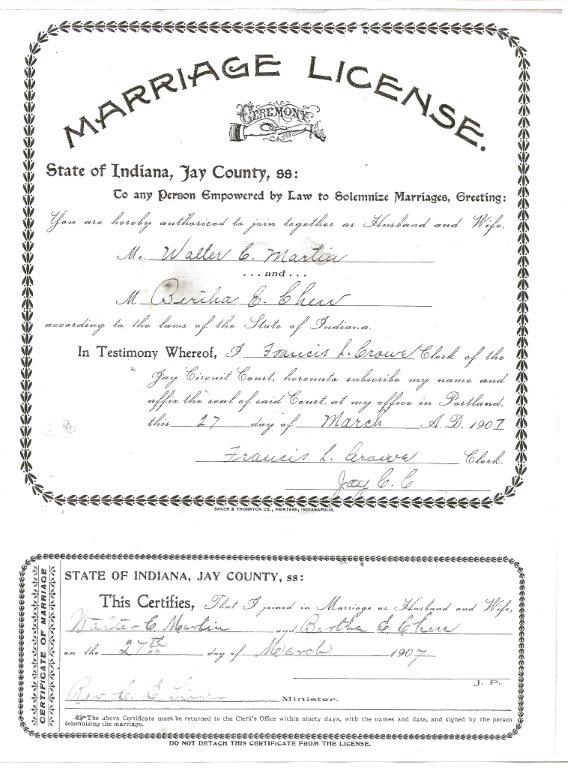 MARRIAGE LICENSE.
CEREMONY
State of Indiana, Jay County, ss:
To any Person Empowered by Law to Solemnize Marriages, Greeting:
You are hereby authorized to join together as Husband and Wife,
M. Walter C. Martin
...and...
M Bertha E. Chew
according to the laws of the State of Indiana.
In Testimony Whereof, I Francis L. Crowe Clerk of the
Jay Circuit Court, hereunto subscribe my name and
affix the seal of said Court, at my office in Portland,
this 27 day of March A. D. 1907
Francis L. Crowe Clerk.
Jay C. C
BAKER & THORNTON CO., PRINTERS, INDIANAPOLIS.
CERTIFICATE OF MARRIAGE
STATE OF INDIANA, JAY COUNTY, ss:
This Certifies, That I joined in Marriage as Husband and Wife,
Walter C Martin and Bertha E Chew
on the 27th day of March 1907
J. P.
Rev. C. E. Minister.
The above Certificate must be returned to the Clerk's Office within ninety days, with the names and date, and signed by the person
solemnizing the marriage.
DO NOT DETACH THIS CERTIFICATE FROM THE LICENSE.